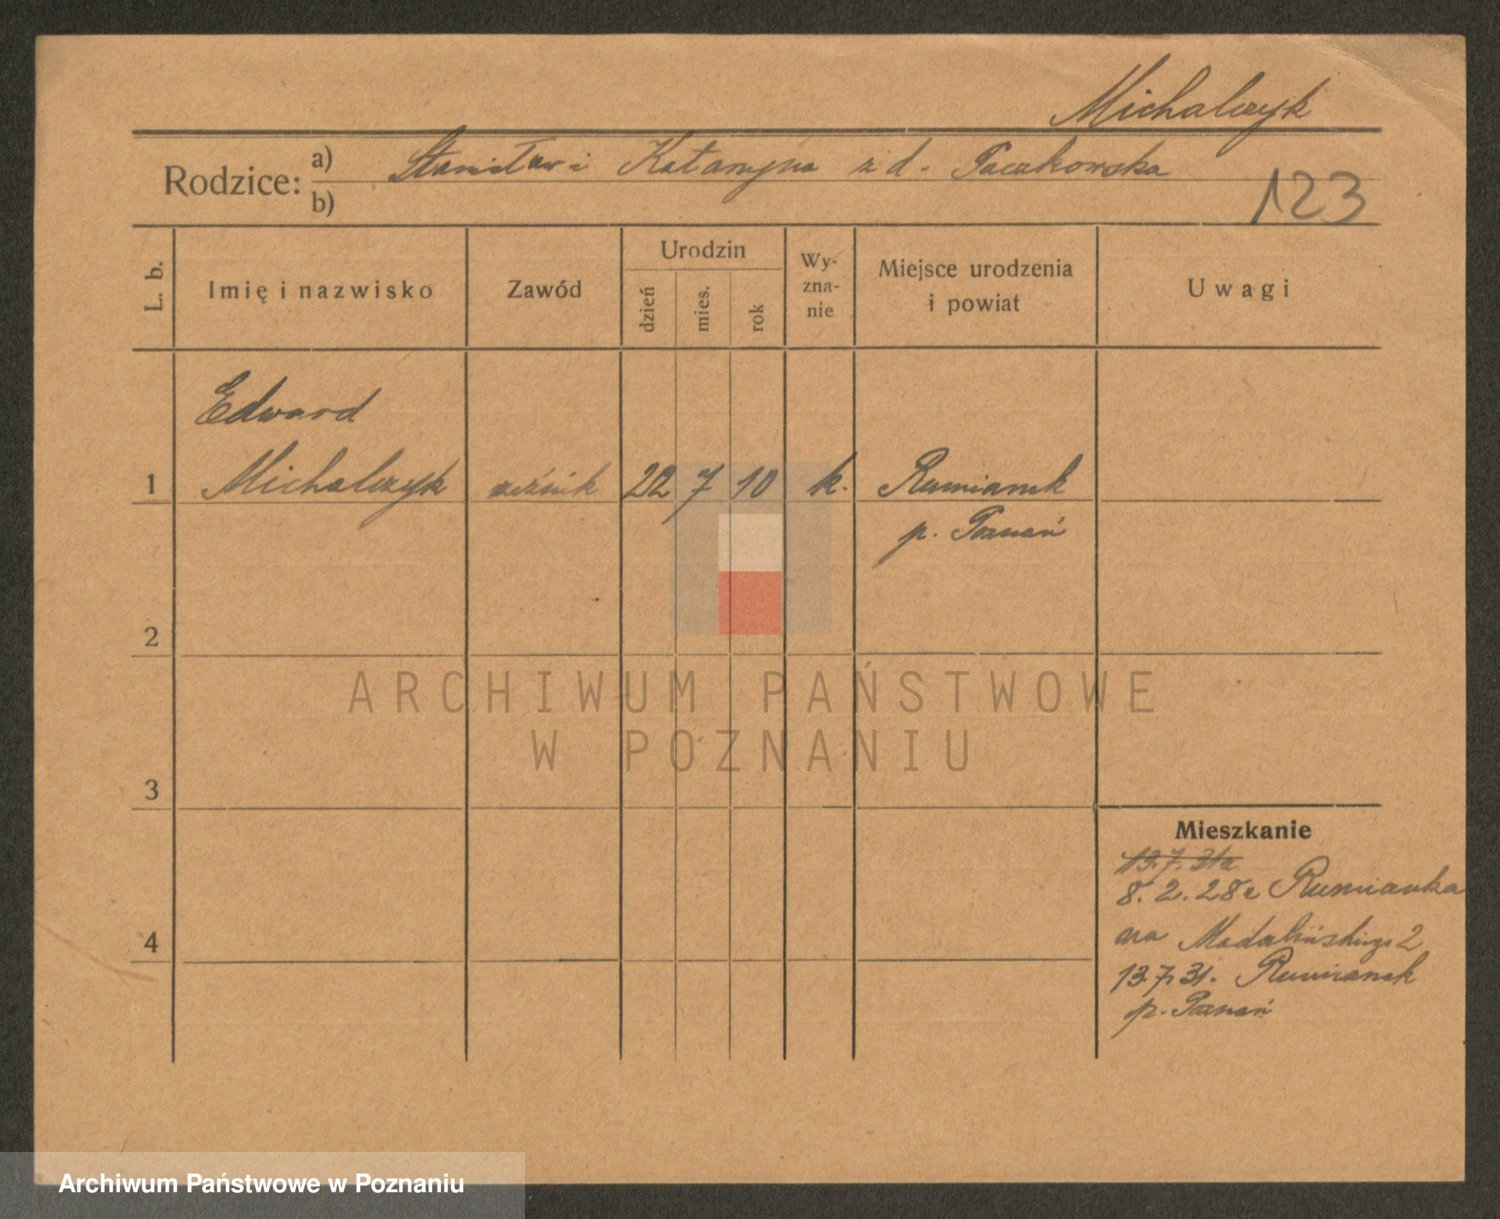 Michalczyk
Rodzice: a) Stanisław i Katarzyna z d. Paczkowska
b)
123
L. b.
Imię i nazwisko
Zawód
Urodzin
dzień
mies.
rok
Wy-
zna-
nie
Miejsce urodzenia
i powiat
Uwagi
Edward
1 Michalczyk rzeźnik 22 7 10 k. Rumianek
p. Poznań
2
ARCHIWUM PAŃSTWOWE
W POZNANIU
3
Mieszkanie
13.7.31 z
8.2.28 z Rumianka
na Madalińskiego 2
4
13.7.31. Rumianek
p. Poznań
Archiwum Państwowe w Poznaniu